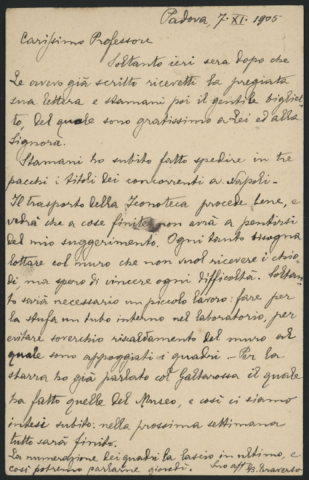 Padova, 7. XI. 1905
Carissimo Professore
Soltanto ieri sera dopo che
Le avevo già scritto ricevetti la pregiata
sua lettera e stamani poi il gentile bigliet-
to, del quale sono gratissimo a Lei ed alla
Signora.
Stamani ho subito fatto spedire in tre
pacchi i titoli dei concorrenti a Napoli.-
Il trasporto della Iconoteca procede bene, e
vedrà che a cose finite non avrà a pentirsi
del mio suggerimento. Ogni tanto bisogna
lottare col muro che non vuol ricevere i chio-
di, ma spero di vincere ogni difficoltà. Soltan-
to sarà necessario un piccolo lavoro: fare per
la stufa un tubo interno nel laboratorio, per
evitare soverchio riscaldamento del muro al
quale sono appoggiati i quadri.- Per la
sbarra ho già parlato col Galtarossa il quale
ha fatto quelle del Museo, e così ci siamo
intesi subito: nella prossima settimana
tutto sarà finito.
La numerazione dei quadri la lascio in ultimo, e
così potremo parlarne giovedì. Suo aff